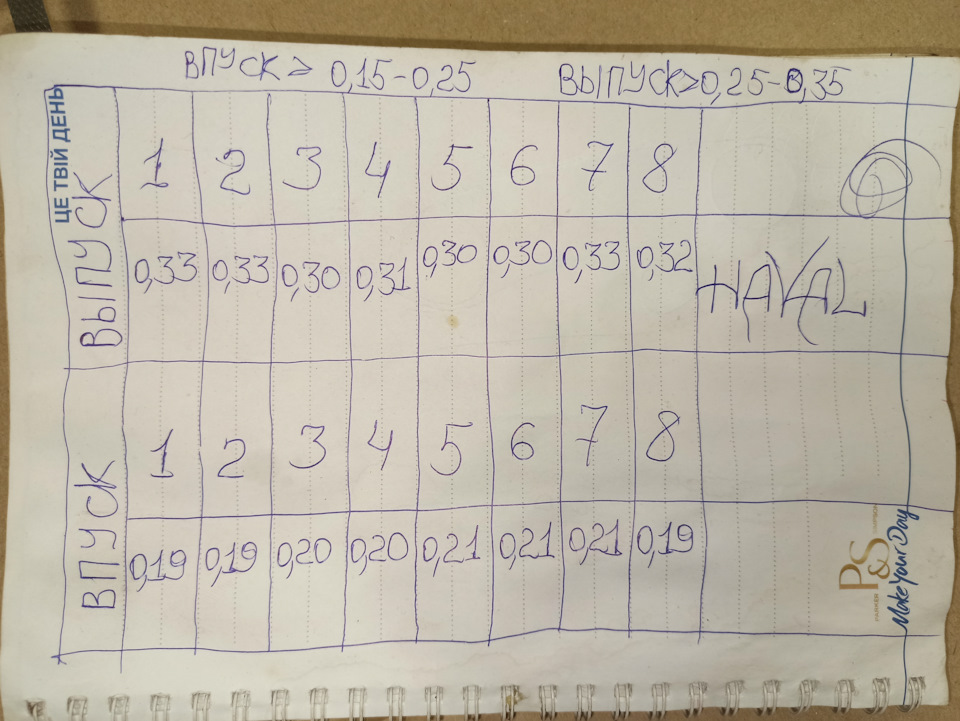 ВПУСК > 0,15-0,25 ВЫПУСК>0,25-0,35
ЦЕ ТВІЙ ДЕНЬ
1 2 3 4 5 6 7 8
ВЫПУСК
0,33 0,33 0,30 0,31 0,30 0,30 0,33 0,32 HAVAL
1 2 3 4 5 6 7 8
ВПУСК
0,19 0,19 0,20 0,20 0,21 0,21 0,21 0,19
P&S
PARKER
Make Your Day